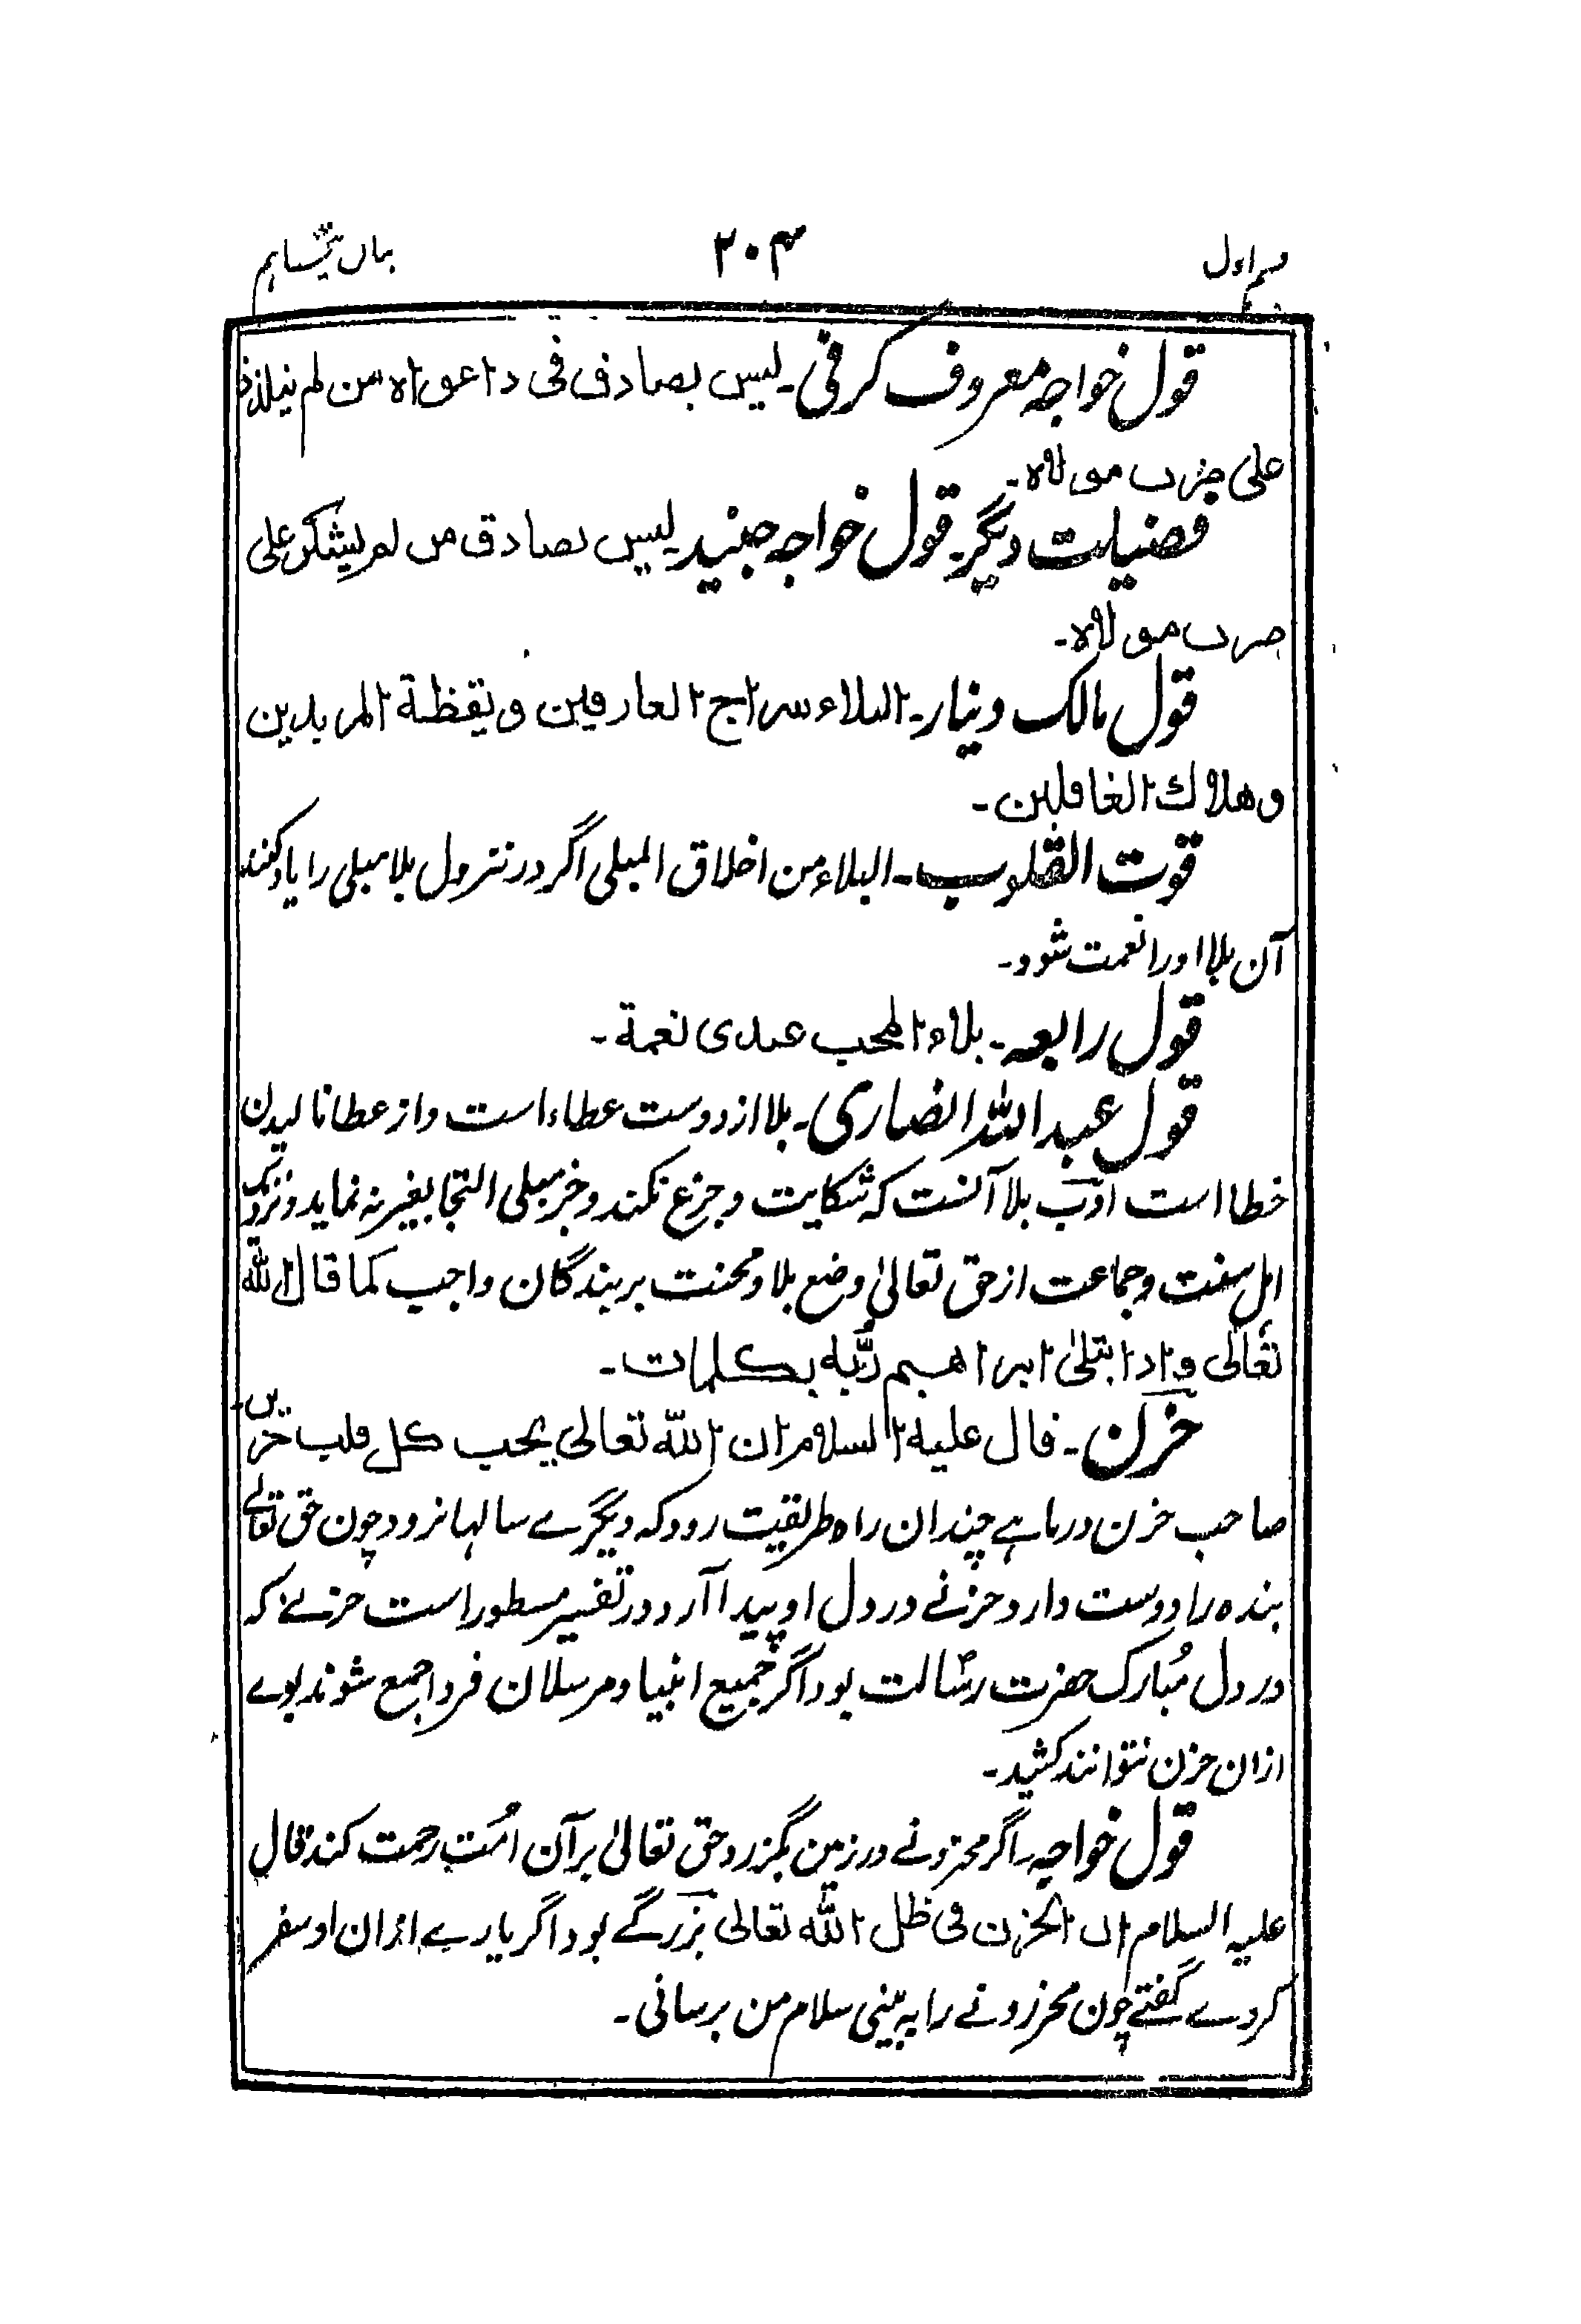 قسم اول ۲۰۴ بیان
قول خواجه معروف کرخی۔ لیس بصادق فی دعواه من لم یتلذذ
علی ضرب مولاه۔
فضیلت دیگر۔ قول خواجه جنید۔ لیس بصادق من لم یشکر علی
ضرب مولاه۔
قول مالک دینار۔ البلاء سراج العارفین و یقظة المریدین
و هلاك الغافلین۔
قوت القلوب۔ البلاء من اخلاق المبلی اگر در نزول بلا مبلی را یاد کند
آن بلا او را نعمت شود۔
قول رابعه۔ بلاء المحب عندی نعمة۔
قول عبد الله انصاری۔ بلا از دوست عطاء است و از عطا نالیدن
خطا است ادب بلا آنست که شکایت و جزع نکند و جز مبلی التجا بغیر نه نماید و نزدیک
اهل سنت و جماعت از حق تعالیٰ وضع بلا و محنت بر بندگان واجب کما قال الله
تعالی و اذ ابتلیٰ ابراهیم ربّه بکلمات۔
حزن۔ قال علیه السلام ان الله تعالی یحب کل قلب حزین
صاحب حزن در ماهے چندان راه طریقت رود که دیگرے سالها نرود چون حق تعالے
بنده را دوست دارد حزنے در دل او پیدا آرد در تفسیر مسطور است حزنے که
در دل مُبارک حضرت رسالت بود اگر جمیع انبیا و مرسلان فردا جمع شوند بوے
ازان حزن نتوانند کشید۔
قول خواجه۔ اگر محزونے در زمین بگزرد حق تعالیٰ بر آن اُمت رحمت کند قال
علیه السلام ان الحزن فی ظل الله تعالی بزرگے بود اگر یارے ازان او سفر
کردے گفتے چون محزونے را به بینی سلام من برسانی۔